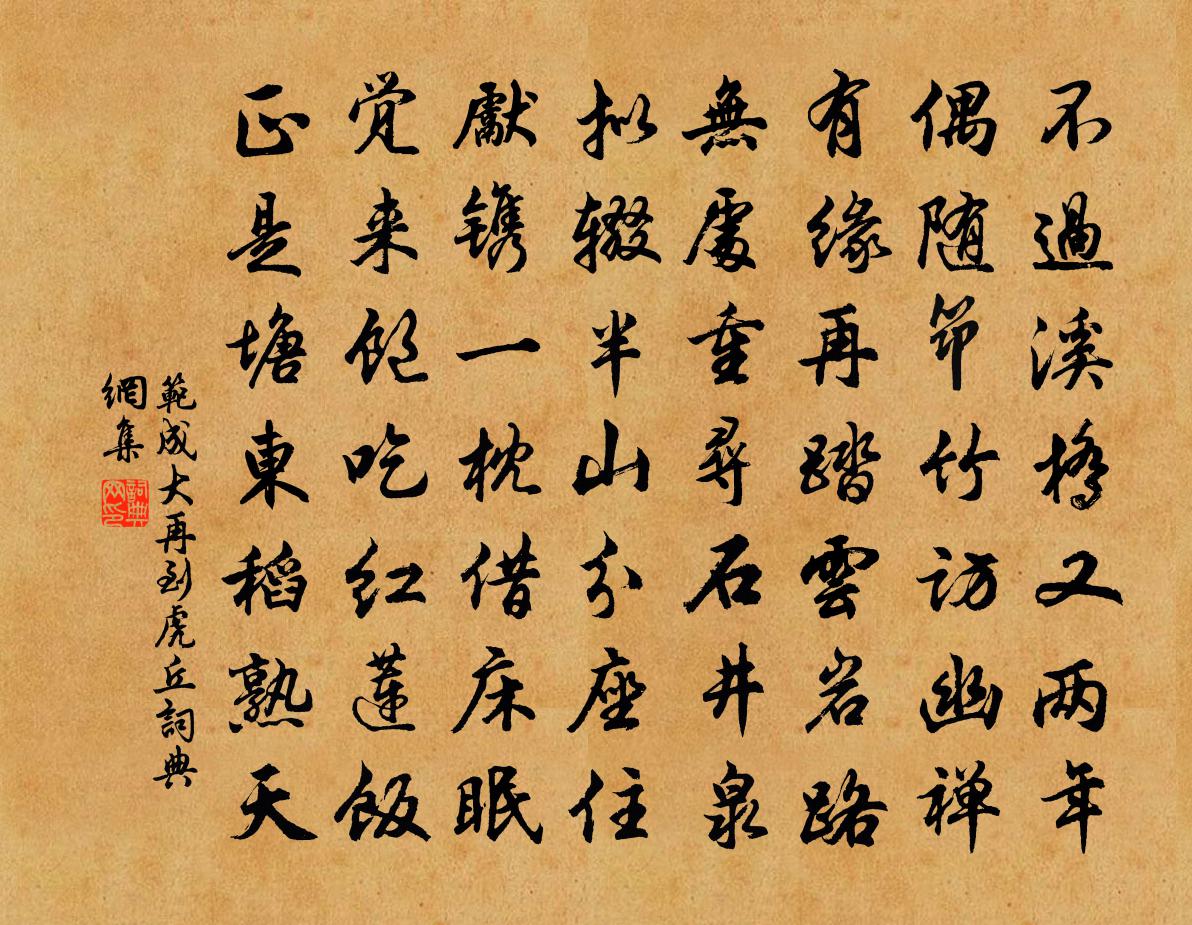 不過溪橋又两年
偶随筇竹訪幽禅
有缘再踏雲岩路
無處重尋石井泉
拟辍半山分座住
獻镌一枕借床眠
觉来飽吃红蓮飯
正是塘東稻熟天
範成大再到虎丘詞典
網集
詞典
网印